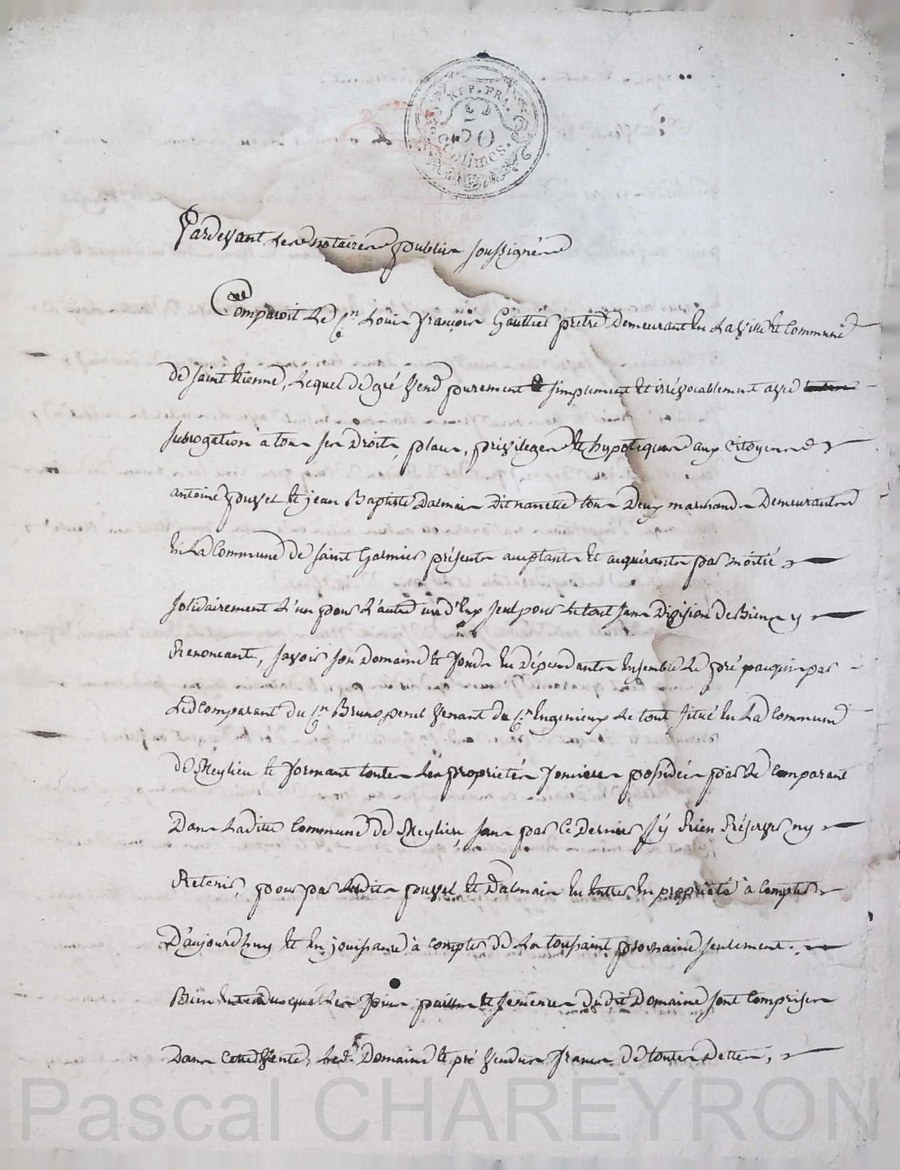 REP. FRA.
50
Centimes.
Pardevant les notaires publics soussignés
Comparoit le Cn Louis François Gaultier pretre demeurant en la ville et commune
de Saint Etienne, lequel de gré vend purement et simplement et irrévocablement avec
subrogation à tous ses droits, places, privileges et hypoteques aux citoyens
antoine pouzet et jean Baptiste Dalmais dit nanette tous deux marchands demeurants
en la commune de saint Galmier présents acceptants et acquérants par moitié
solidairement l'un pour l'autre un d'eux seul pour le tout sans division de Biens y
Renoncant, savoir son domaine et fonds en dépendants ensemble le pré acquis par
led comparant du Cn Bruno penel venant du Cn Ingenieux le tout situé en la commune
de Meylieu et formant toutes les proprietés foncieres possédées par le comparant
Dans laditte commune de Meylieu, sans par ce dernier s'y Rien Réserver ny
Retenir, pour par lesdits pouzet et Dalmais en entrer en proprieté à compter
D'aujourd'huy et en jouissance à compter de la toussaint prochaine seulement.
Bien entendu que les foins pailles et dudit Domaine sont comprises
Dans cette vente, led. Domaine et pré vendus francs de toutes dettes,
Pascal CHAREYRON